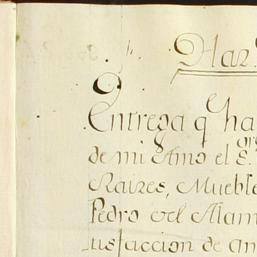 Har
Entrega q̃ ha
de mi Amo el E.
Raizes, Mueble
Pedro del Alam
usfaccion de an